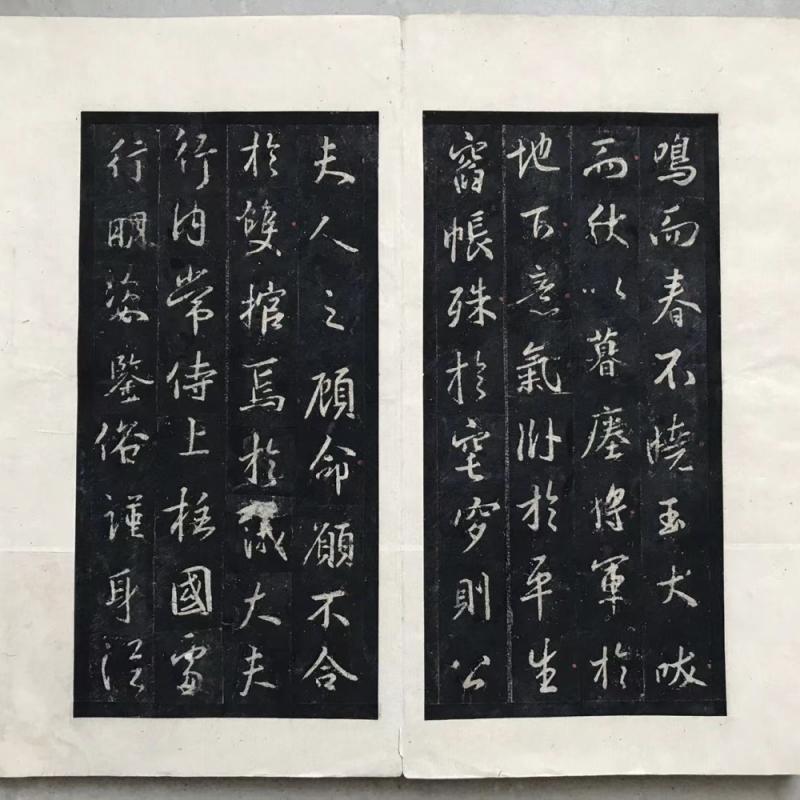 鳴而春不曉玉犬吠
而秋以暮瘞將軍於
地下意氣附於平生
窅帳殊於窀穸則公
夫人之顧命願不合
於雙棺焉於大夫
行內常侍上柱國雷
行明姿鑒俗謹身從